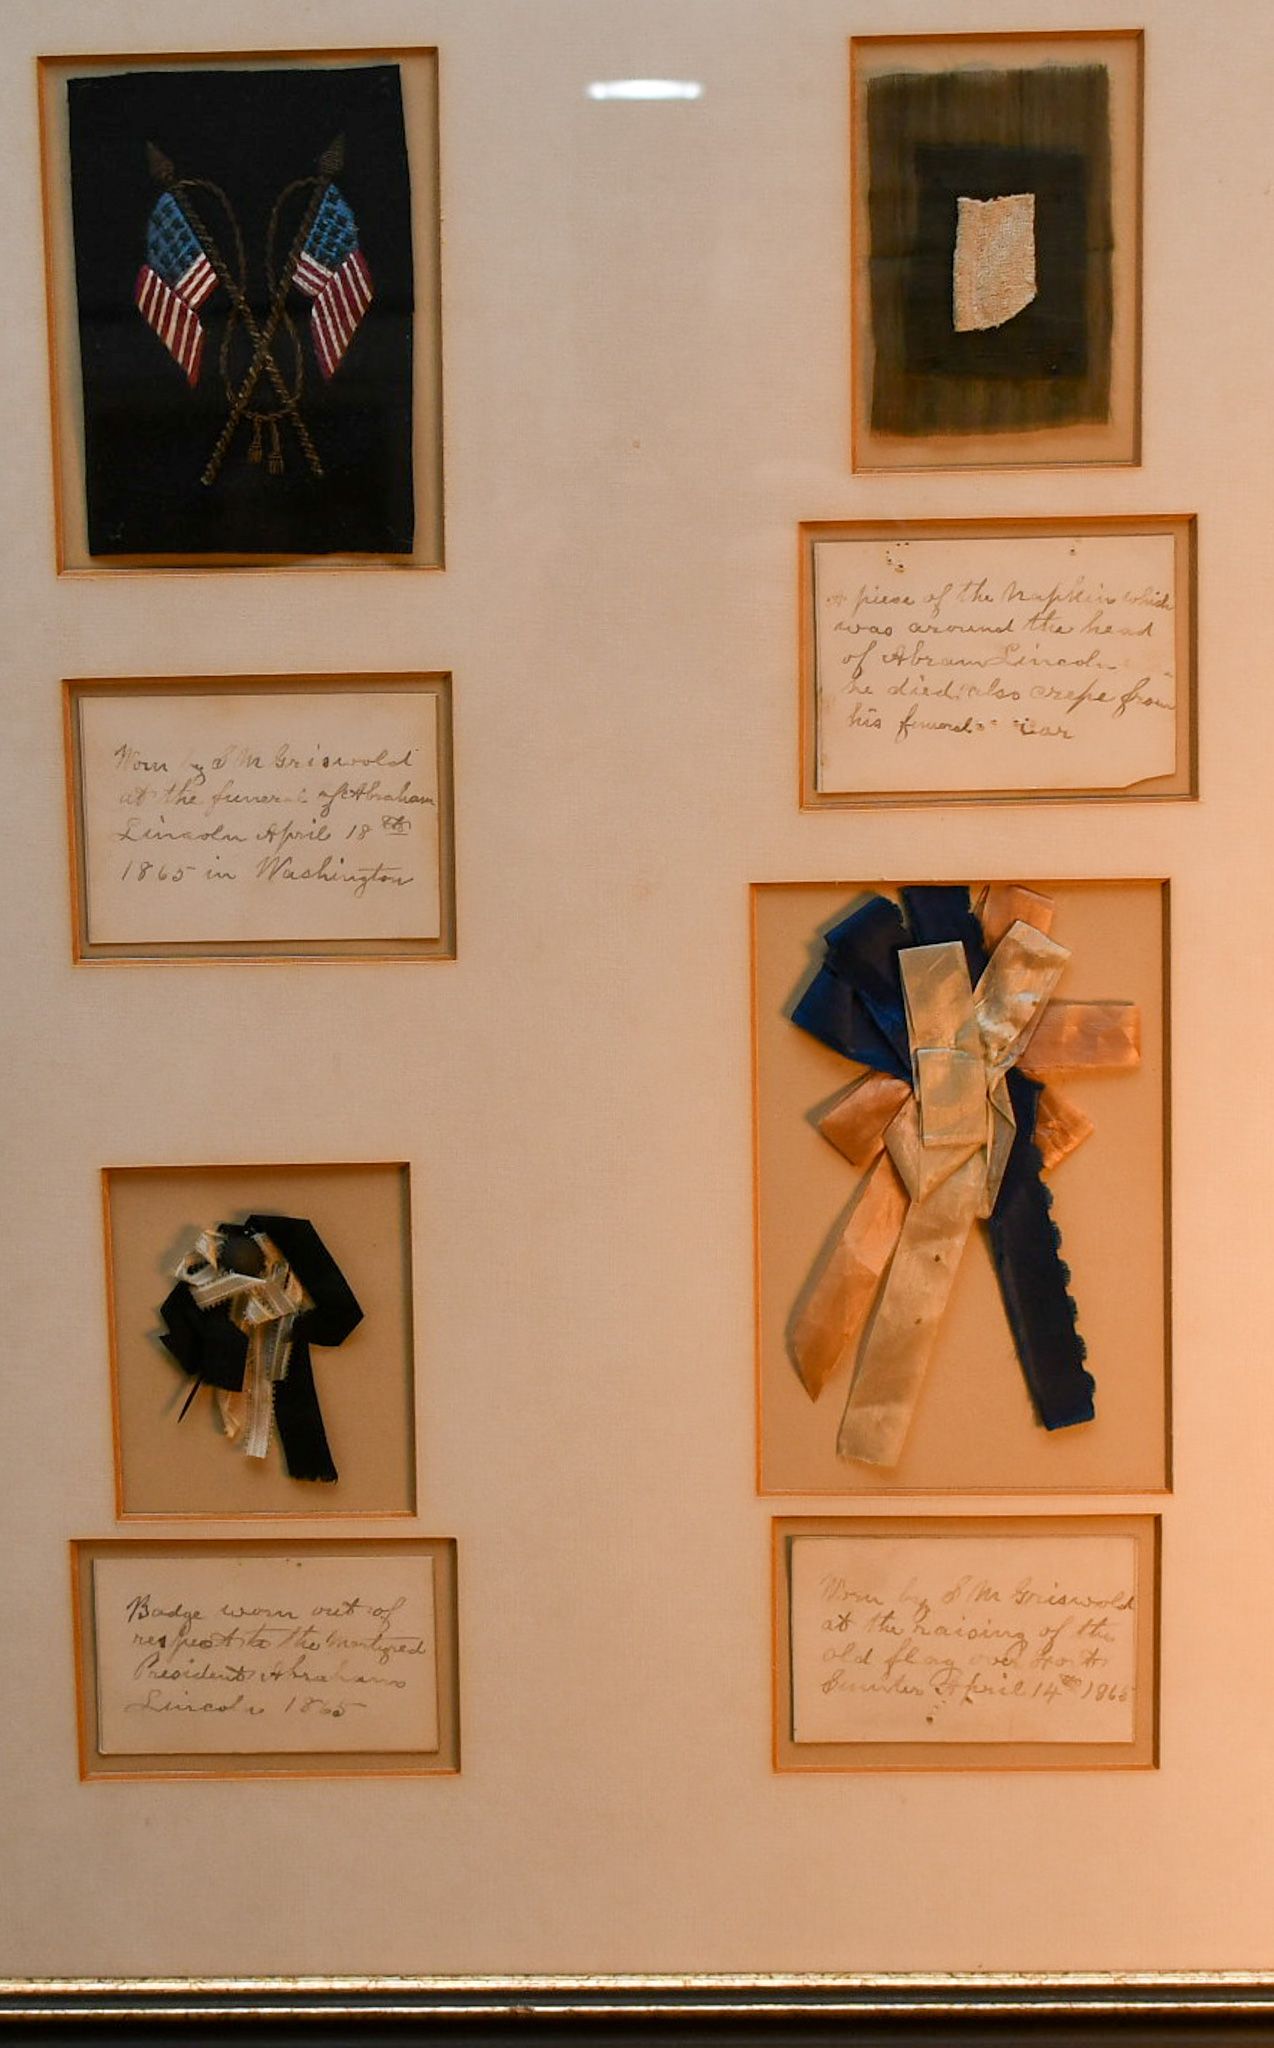 Worn by S M Griswold
at the funeral of Abraham
Lincoln April 18th
1865 in Washington
A piese of the Napkin which
was around the head
of Abram Lincoln
he died. also crepe from
his funeral car
Badge worn out of
respect to the Martyred
President Abraham
Lincoln 1865
Worn by S M Griswold
at the raising of the
old flag over Fort
Sumter April 14th 1865